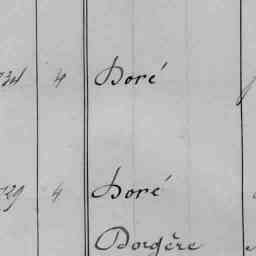 4 Doré
4 Doré
Dorgère